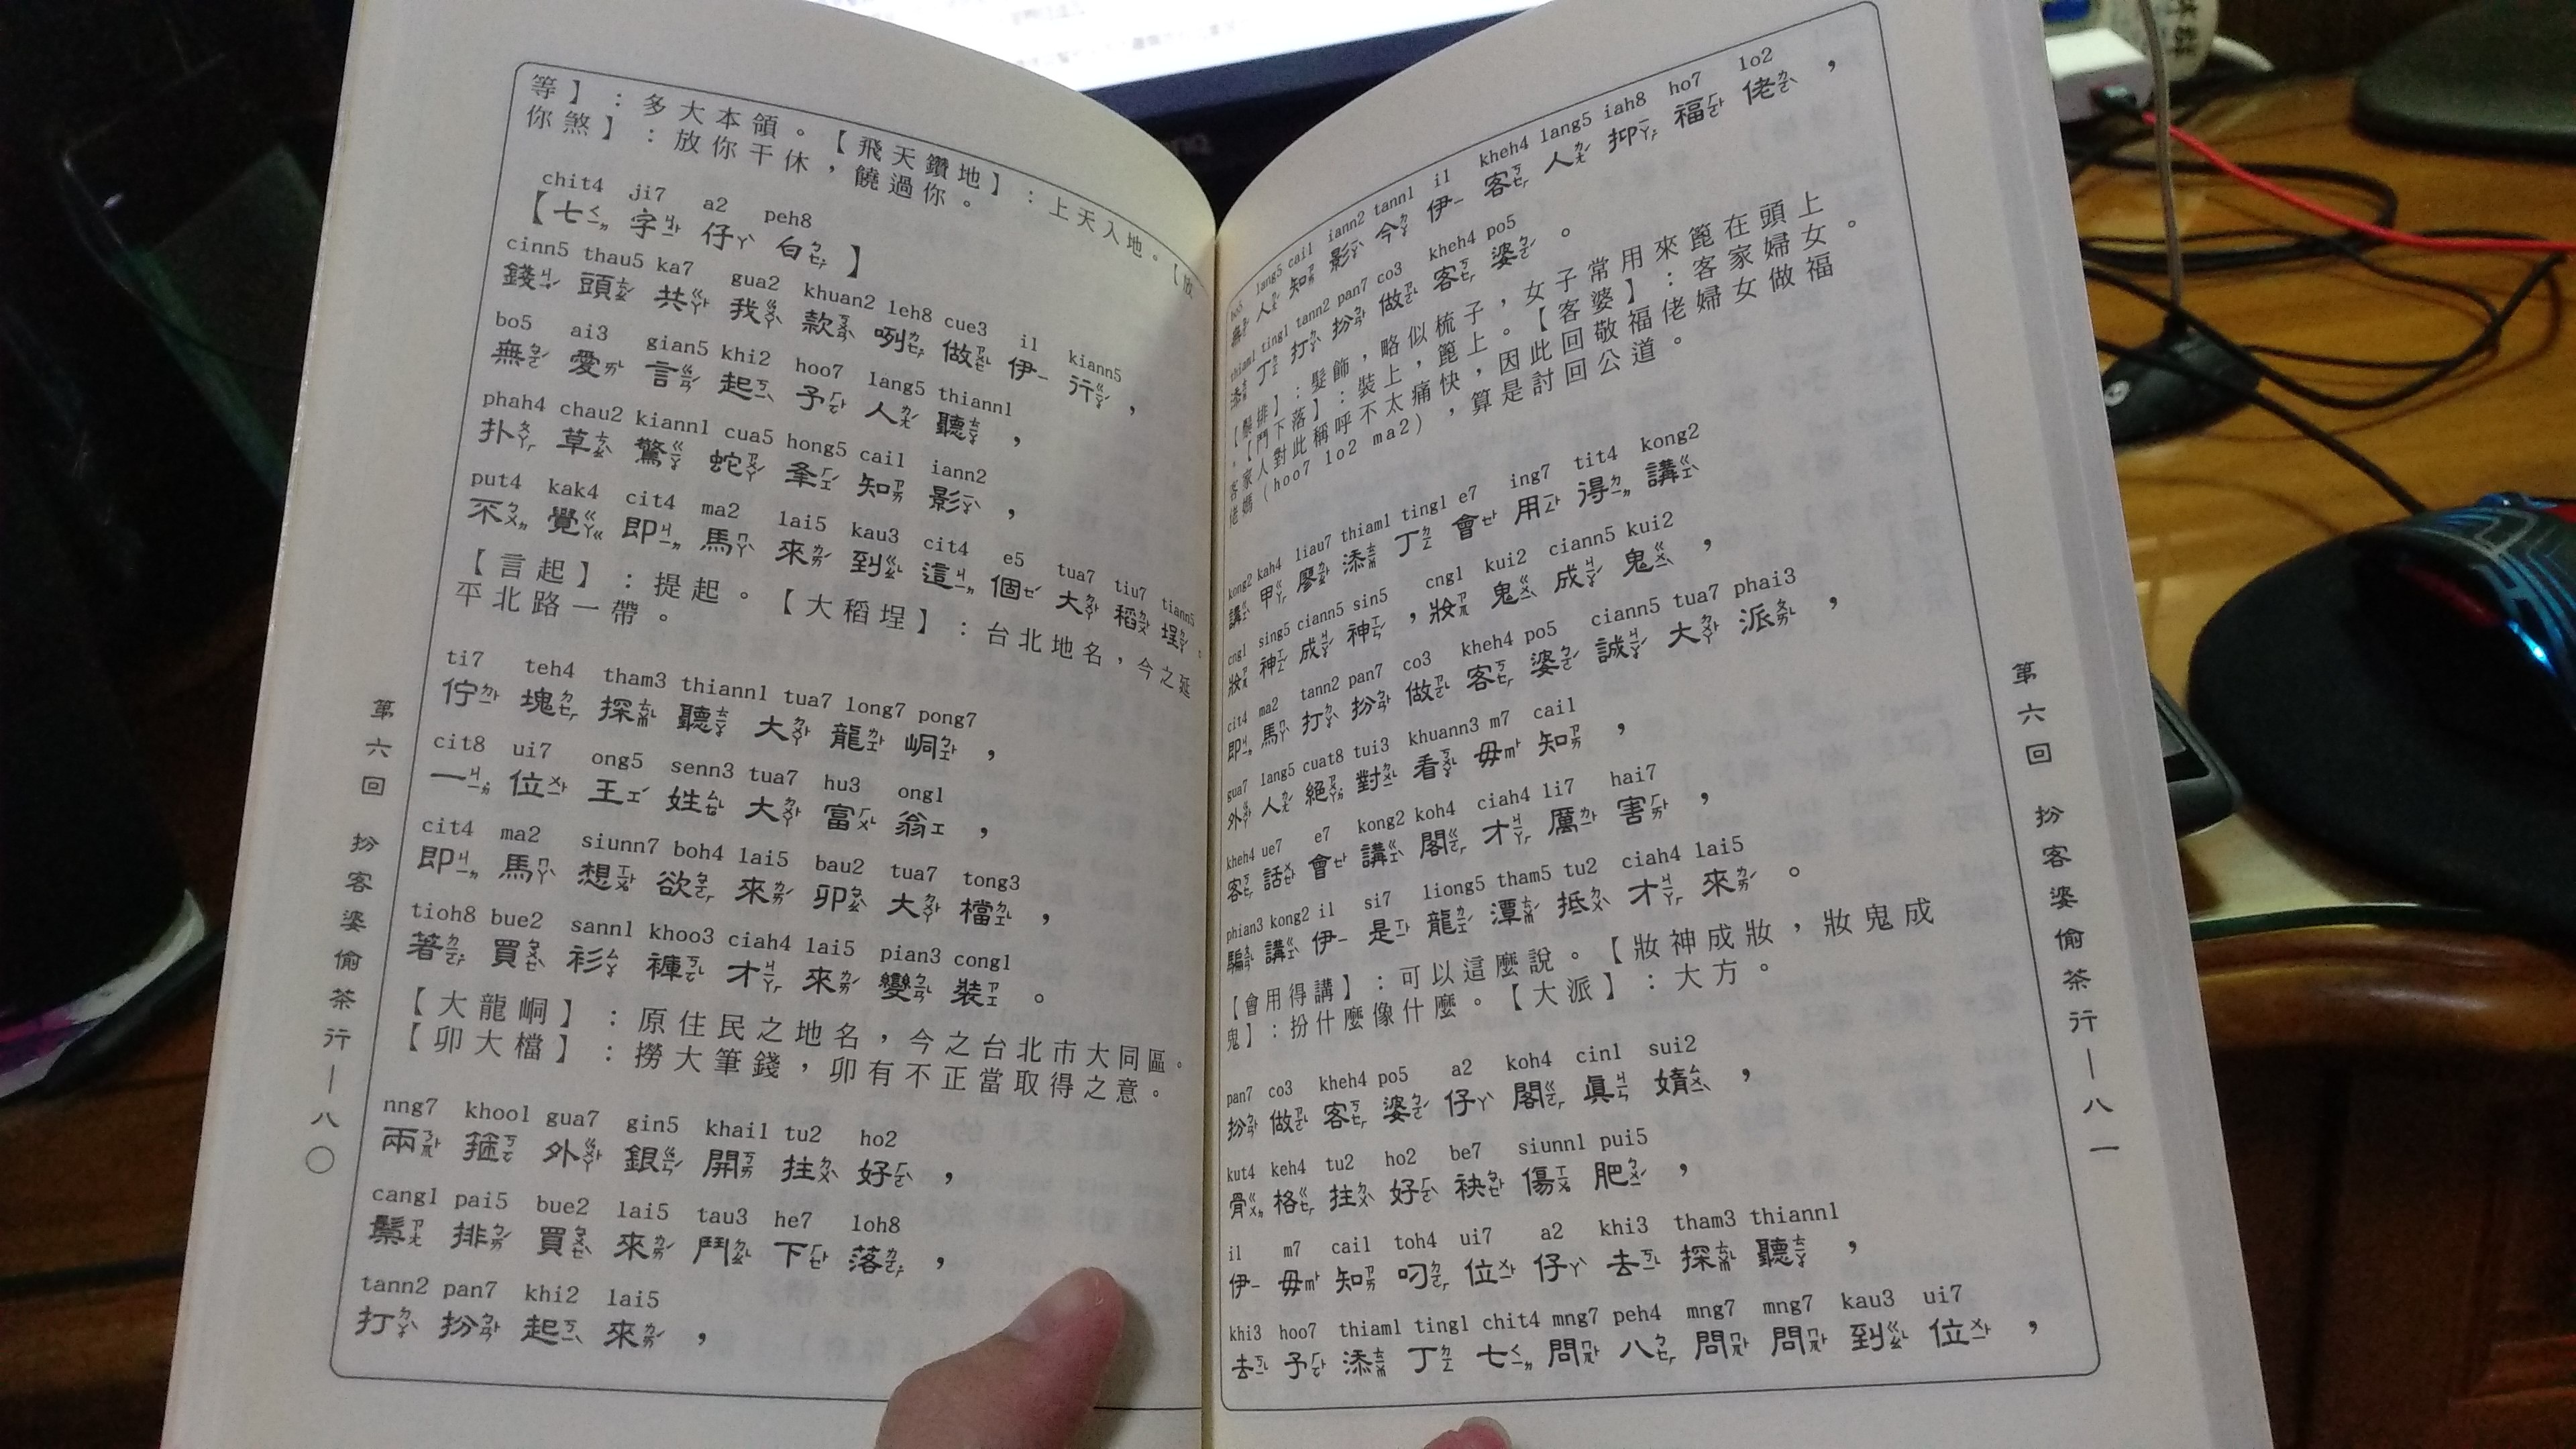 等】：多大本領。【飛天鑽地】：上天入地。【放
你煞】：放你干休，饒過你。
chit4 ji7 a2 peh8
【七字仔白】
cinn5 thau5 ka7 gua2 khuan2 leh8 cue3 i1 kiann5
錢頭共我款咧做伊行，
bo5 ai3 gian5 khi2 hoo7 lang5 thiann1
無愛言起予人聽，
phah4 chau2 kiann1 cua5 hong5 cai1 iann2
扑草驚蛇夆知影，
put4 kak4 cit4 ma2 lai5 kau3 cit4 e5 tua7 tiu7 tiann5
不覺即馬來到這個大稻埕。
【言起】：提起。【大稻埕】：台北地名，今之延
平北路一帶。
ti7 teh4 tham3 thiann1 tua7 long7 pong7
佇塊探聽大龍峒，
cit8 ui7 ong5 senn3 tua7 hu3 ong1
一位王姓大富翁，
cit4 ma2 siunn7 boh4 lai5 bau2 tua7 tong3
即馬想欲來卯大檔，
tioh8 bue2 sann1 khoo3 ciah4 lai5 pian3 cong1
著買衫褲才來變裝。
【大龍峒】：原住民之地名，今之台北市大同區。
【卯大檔】：撈大筆錢，卯有不正當取得之意。
nng7 khoo1 gua7 gin5 khai1 tu2 ho2
兩箍外銀開拄好，
cang1 pai5 bue2 lai5 tau3 he7 loh8
鬃排買來鬥下落，
tann2 pan7 khi2 lai5
打扮起來，
第六回 扮客婆偷茶行—八〇
bo5 lang5 cai1 iann2 tann1 i1 kheh4 lang5 iah8 ho7 lo2
無人知影今伊客人抑福佬，
thiam1 ting1 tann2 pan7 co3 kheh4 po5
添丁打扮做客婆。
【鬃排】：髮飾，略似梳子，女子常用來篦在頭上
。【鬥下落】：裝上，篦上。【客婆】：客家婦女。
客家人對此稱呼不太痛快，因此回敬福佬婦女做福
佬媽(hoo7 lo2 ma2)，算是討回公道。
kong2 kah4 liau7 thiam1 ting1 e7 ing7 tit4 kong2
講甲廖添丁會用得講
cng1 sing5 ciann5 sin5 cng1 kui2 ciann5 kui2
妝神成神，妝鬼成鬼，
cit4 ma2 tann2 pan7 co3 kheh4 po5 ciann5 tua7 phai3
即馬打扮做客婆誠大派，
gua7 lang5 cuat8 tui3 khuann3 m7 cai1
外人絕對看毋知，
kheh4 ue7 e7 kong2 koh4 ciah4 li7 hai7
客話會講閣才厲害，
phian3 kong2 i1 si7 liong5 tham5 tu2 ciah4 lai5
騙講伊是龍潭抵才來。
【會用得講】：可以這麼說。【妝神成妝，妝鬼成
鬼】：扮什麼像什麼。【大派】：大方。
pan7 co3 kheh4 po5 a2 koh4 cin1 sui2
扮做客婆仔閣真婧，
kut4 keh4 tu2 ho2 be7 siunn1 pui5
骨格拄好袂傷肥，
i1 m7 cai1 toh4 ui7 a2 khi3 tham3 thiann1
伊毋知叼位仔去探聽，
khi3 hoo7 thiam1 ting1 chit4 mng7 peh4 mng7 mng7 kau3 ui7
去予添丁七問八問問到位，
第六回 扮客婆偷茶行—八一